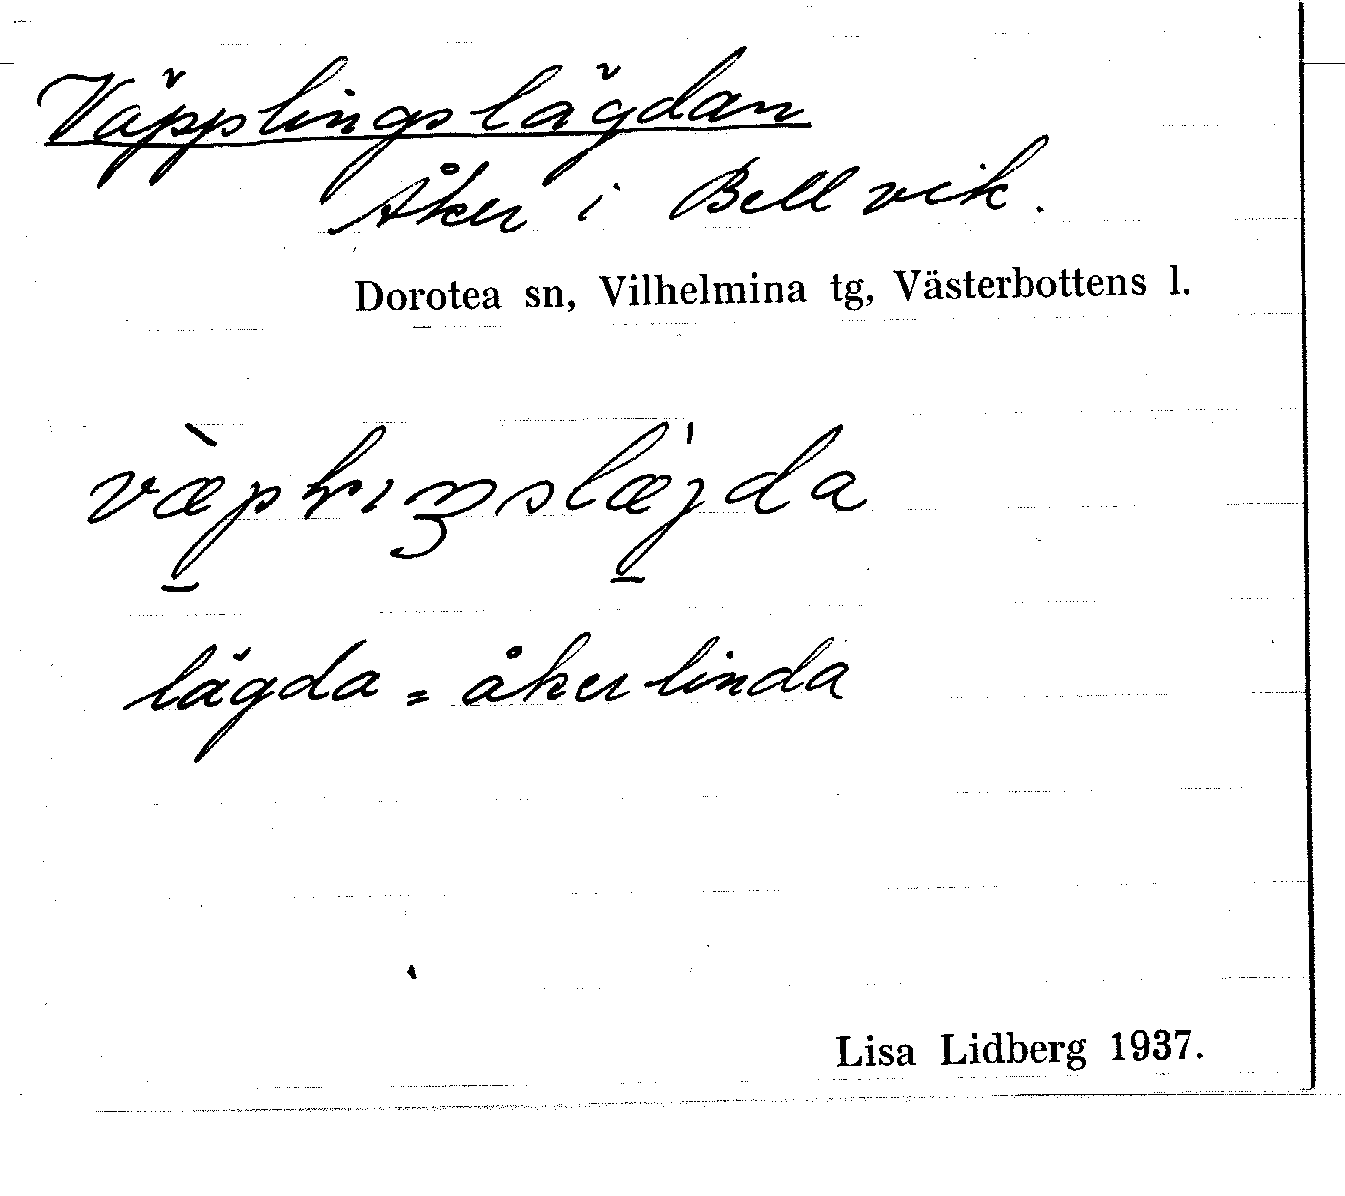 Väpplingslägdan
Åker i Bellvik.
Dorotea sn, Vilhelmina tg, Västerbottens l.
væ̀płıŋslæ̍jda
lägda = åkerlinda
Lisa Lidberg 1937.